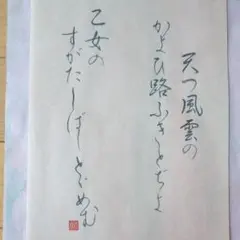 天つ風雲の
かよひ路ふきとぢよ
乙女の
すがたしばしとゞめむ